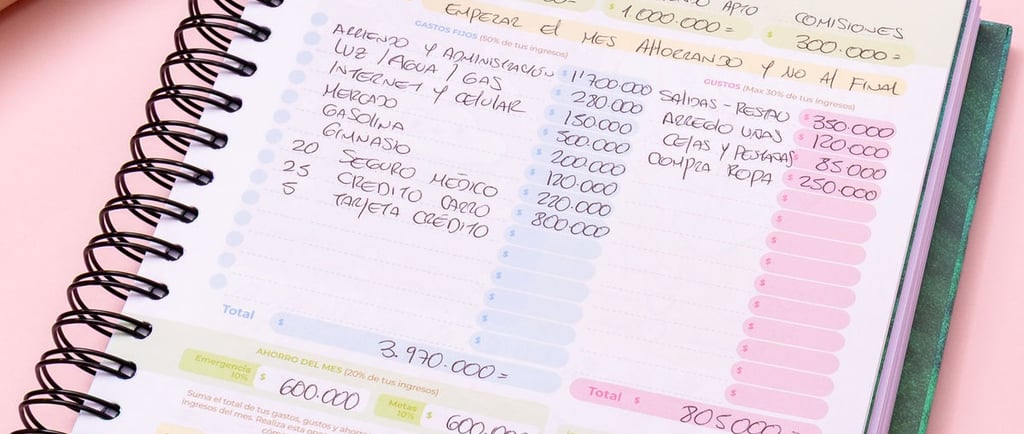 APTO COMISIONES
1.000.000= 300.000=
EMPEZAR el MES AHORRANDO Y NO Al FINAL
GASTOS FIJOS (50% de tus ingresos)
ARRIENDO Y ADMINISTRACIÓN $ 1'700.000
LUZ / AGUA / GAS 280.000
INTERNET Y CELULAR 150.000
MERCADO 500.000
GASOLINA 200.000
GIMNASIO 120.000
20 SEGURO MÉDICO 220.000
25 CREDITO CARRO 800.000
5 TARJETA CRÉDITO
Total $ 3.970.000=
GUSTOS (Max 30% de tus ingresos)
SALIDAS - RESTAU $ 350.000
ARREGLO UÑAS $ 120.000
CEJAS Y PESTAÑAS $ 85.000
COMPRA ROPA $ 250.000
Total $ 805.000=
AHORRO DEL MES (20% de tus ingresos)
Emergencia 10% $ 600.000
Metas 10% $
Suma el total de tus gastos, gustos y
ingresos del mes. Realiza esta